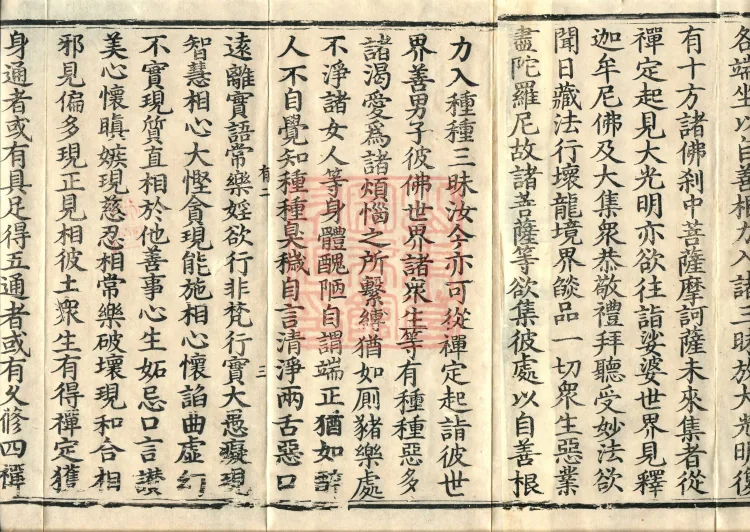 各端坐以自善根力入諸三昧放大光明復
有十方諸佛刹中菩薩摩訶薩未來集者從
禪定起見大光明亦欲往詣娑婆世界見釋
迦牟尼佛及大集衆恭敬禮拜聽受妙法欲
聞日藏法行壞龍境界燄品一切衆生惡業
盡陀羅尼故諸菩薩等欲集彼處以自善根
力入種種三昧汝今亦可從禪定起詣彼世
界善男子彼佛世界諸衆生等有種種惡多
諸渴愛爲諸煩惱之所繫縛猶如厠猪樂處
不淨諸女人等身體醜陋自謂端正猶如醉
人不自覺知種種臭穢自言清淨兩舌惡口
有二 三
遠離實語常樂婬欲行非梵行實大愚癡現
智慧相心大慳貪現能施相心懷諂曲虛幻
不實現質直相於他善事心生妬忌口言讃
美心懷瞋嫉現慈忍相常樂破壞現和合相
邪見偏多現正見相彼土衆生有得禪定獲
身通者或有具足得五通者或有久修四禪